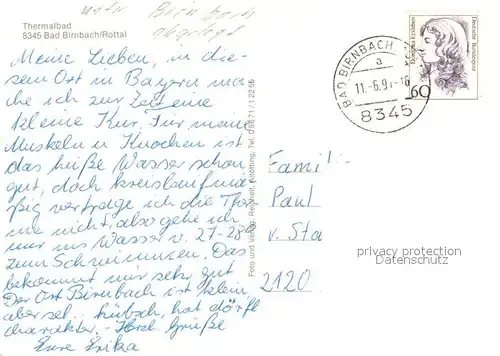 unter Birnbach
abgelegt
Thermalbad
8345 Bad Birnbach/Rottal
Meine Lieben, in die-
sem Ort in Bayern ma-
che ich zur Zeit eine
kleine Kur. Für meine
Muskeln u. Knochen ist
das heiße Wasser schon
gut, doch kreislaufmä-
ßig vertrage ich die Ther
me nicht, also gehe ich
nur ins Wasser v. 27-28°
zum Schwimmen. Das
bekommt mir sehr gut
Der Ort Birnbach ist klein
aber sehr hübsch, hat dörfl.
charakter. - Herzl. Grüße
Eure Erika
Foto und Verlag
BAD BIRNBACH
a
11.-6.91-16
8345
Dorothea Erxleben
Deutsche Bundespost
60
Famili
Paul
v. Sta
2120
privacy protection
Datenschutz